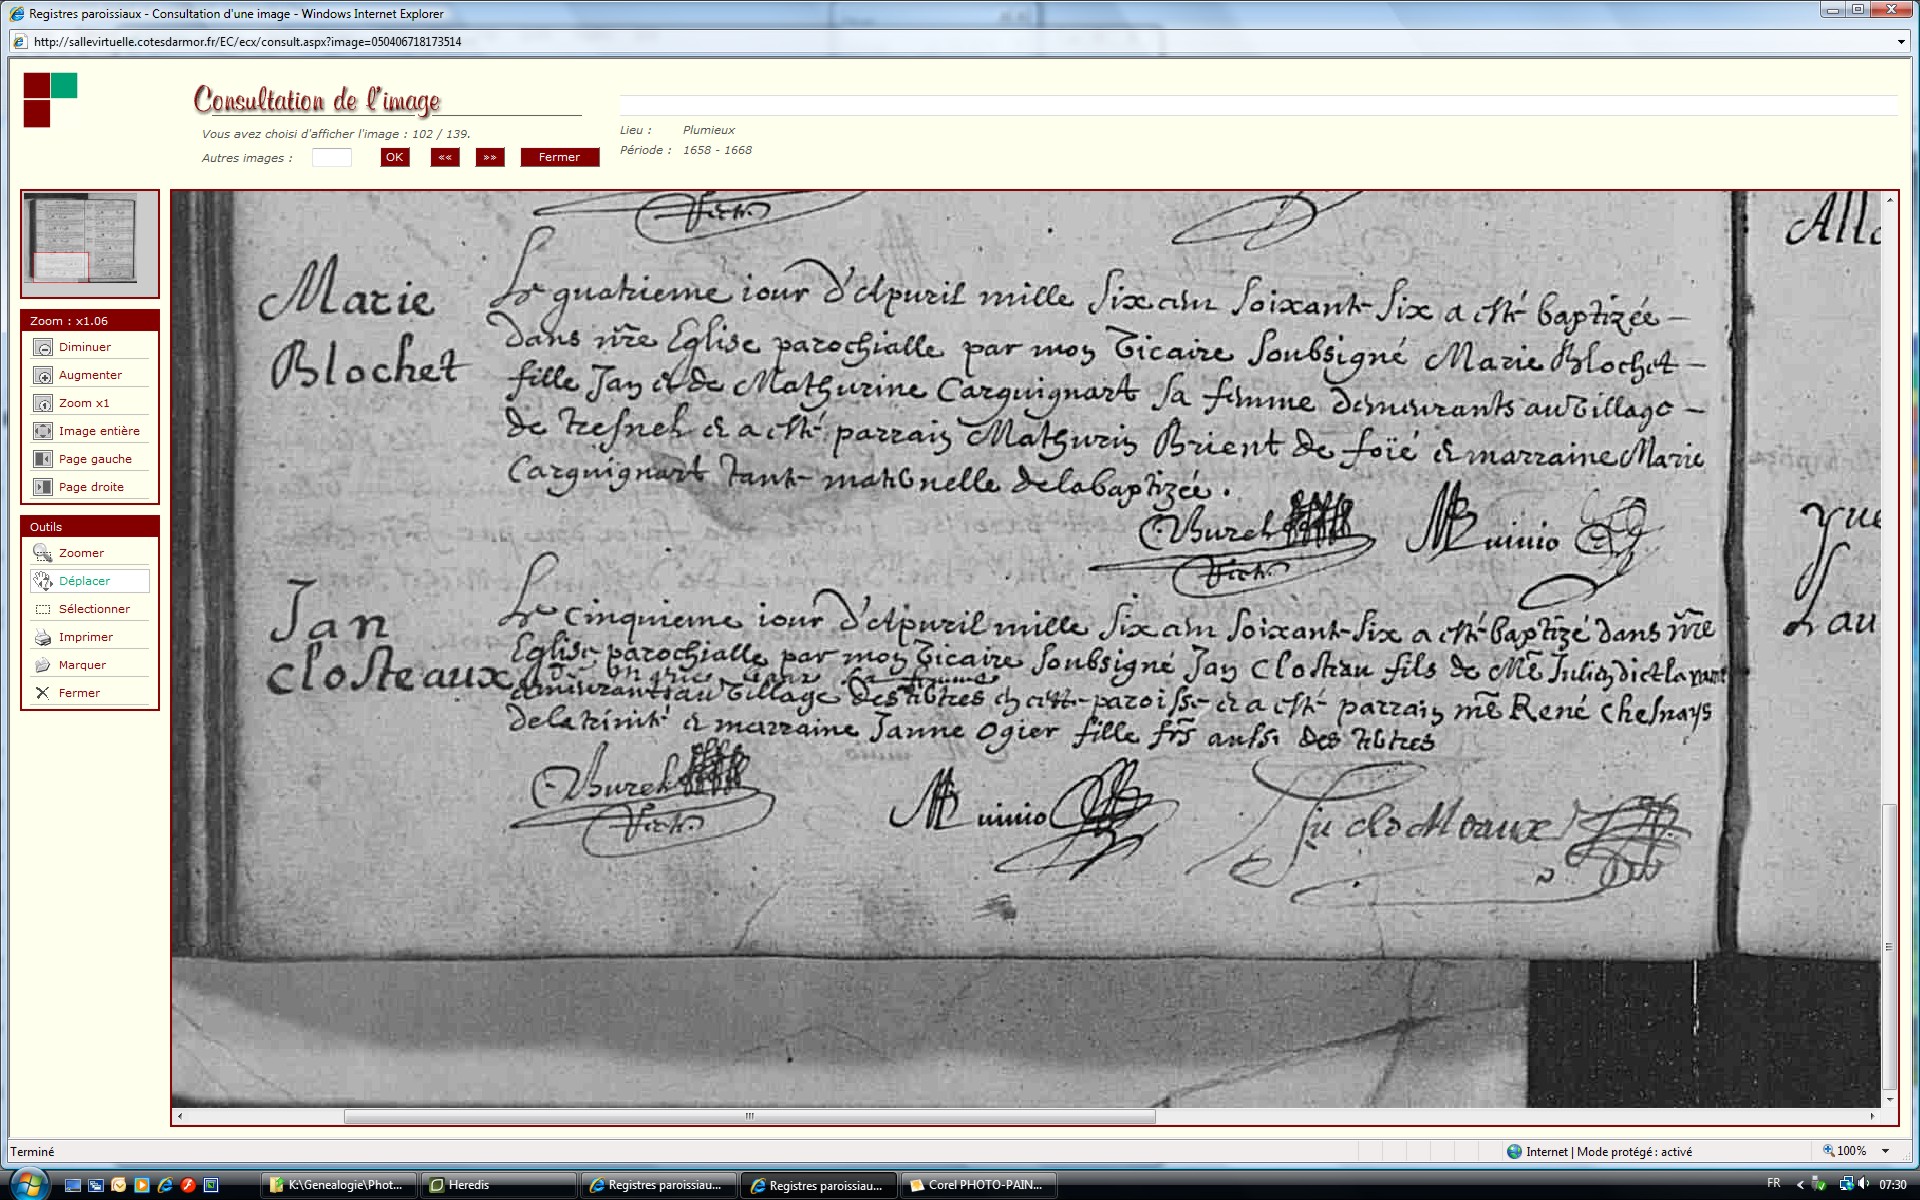 Registres paroissiaux - Consultation d'une image - Windows Internet Explorer
http://sallevirtuelle.cotesdarmor.fr/EC/ecx/consult.aspx?image=050406718173514
Consultation de l'image
Vous avez choisi d'afficher l'image : 102 / 139.
Autres images :
OK
««
»»
Fermer
Lieu : Plumieux
Période : 1658 - 1668
Zoom : x1.06
Diminuer
Augmenter
Zoom x1
Image entière
Page gauche
Page droite
Outils
Zoomer
Déplacer
Sélectionner
Imprimer
Marquer
Fermer
Marie
Blochet
Le quatrieme iour d'Apuril mille six cens soixante six a esté baptizée
dans nre Eglise parochialle par moy Vicaire soubsigné Marie Blochet
fille Jan et de Mathurine Carguignart sa femme demeurants au Village
de et a esté parrain Mathurin Brient de foïé et marraine Marie
Carguignart tante maternelle de la baptizée.
Jan
closteaux
Le cinquieme iour d'Apuril mille six cens soixante six a esté baptizé dans nre
Eglise parochialle par moy Vicaire soubsigné Jan Closteau fils de Me Julien
sa femme
demeurants au Village des en cette paroisse et a esté parrain me René Chesnays
de la trinité et marraine Janne Ogier fille aussi des
Terminé
Internet | Mode protégé : activé
100%
K:\Genealogie\Phot...
Heredis
Registres paroissiau...
Registres paroissiau...
Corel PHOTO-PAIN...
FR
07:30